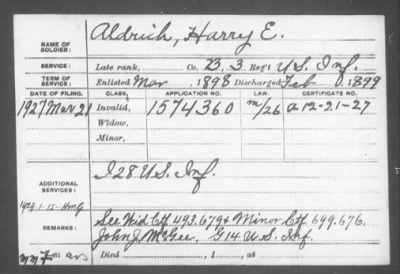 Aldrich, Harry E.
NAME OF SOLDIER:
SERVICE: Late rank, Co. B. 3. Reg't U.S. Inf.
TERM OF SERVICE: Enlisted Mar 1898 Discharged Feb 1899
DATE OF FILING. CLASS. APPLICATION NO. LAW. CERTIFICATE NO.
1927 Mar 21 Invalid, 1574360 m/26 a 12-21-27
Widow,
Minor,
ADDITIONAL SERVICES: I 28 U.S. Inf.
REMARKS: See Wid Ctf 493.679 & Minor Ctf 699.676.
John J. McGee, G 14 U.S. Inf.
Died , 1 , at